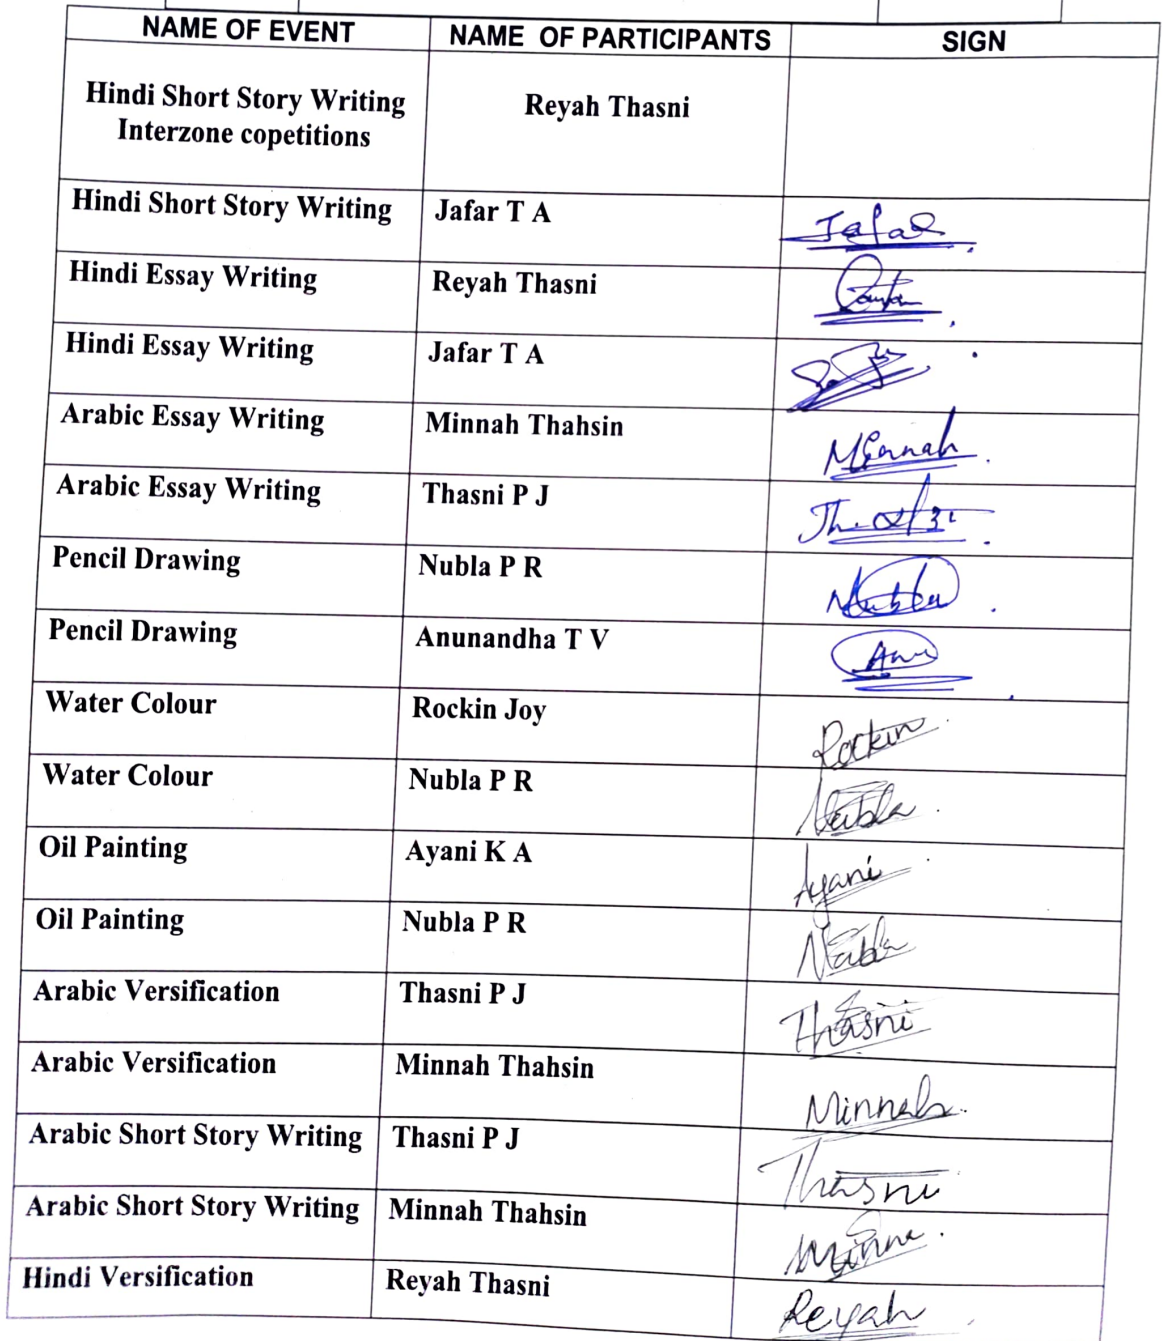 NAME OF EVENT NAME OF PARTICIPANTS SIGN
Hindi Short Story Writing
Interzone copetitions Reyah Thasni
Hindi Short Story Writing Jafar T A Jafar
Hindi Essay Writing Reyah Thasni
Hindi Essay Writing Jafar T A
Arabic Essay Writing Minnah Thahsin Minnah
Arabic Essay Writing Thasni P J
Pencil Drawing Nubla P R Nubla
Pencil Drawing Anunandha T V Anu
Water Colour Rockin Joy Rockin
Water Colour Nubla P R Nubla
Oil Painting Ayani K A Ayani
Oil Painting Nubla P R Nubla
Arabic Versification Thasni P J Thasni
Arabic Versification Minnah Thahsin Minnah
Arabic Short Story Writing Thasni P J Thasni
Arabic Short Story Writing Minnah Thahsin
Hindi Versification Reyah Thasni Reyah